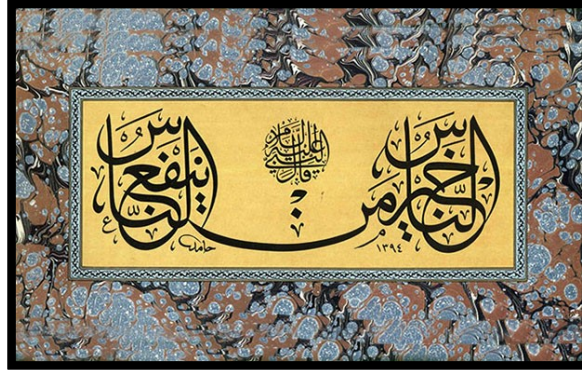 قال النبي عليه السلام
خير الناس من ينفع الناس
حامد
١٣٩٤